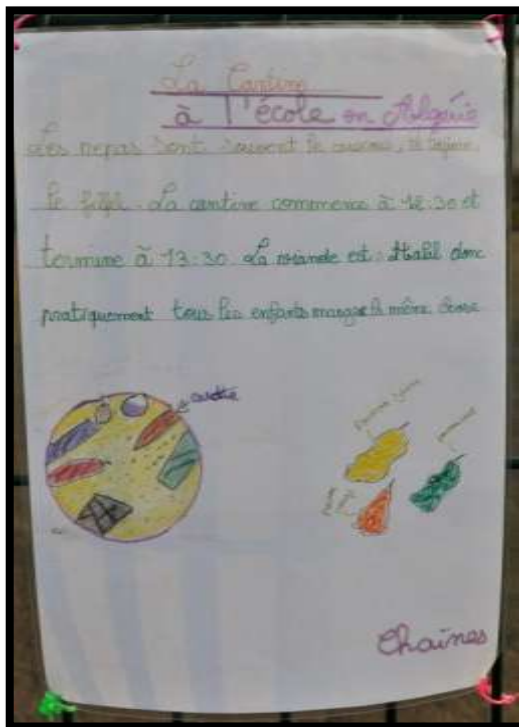 La Cantine
à l'école en Algérie
Les repas sont souvent le couscous, le tajine,
le felfel. La cantine commence à 12:30 et
termine à 13:30. La viande est Hallal donc
pratiquement tous les enfants mange le même chose
carotte
Chaines